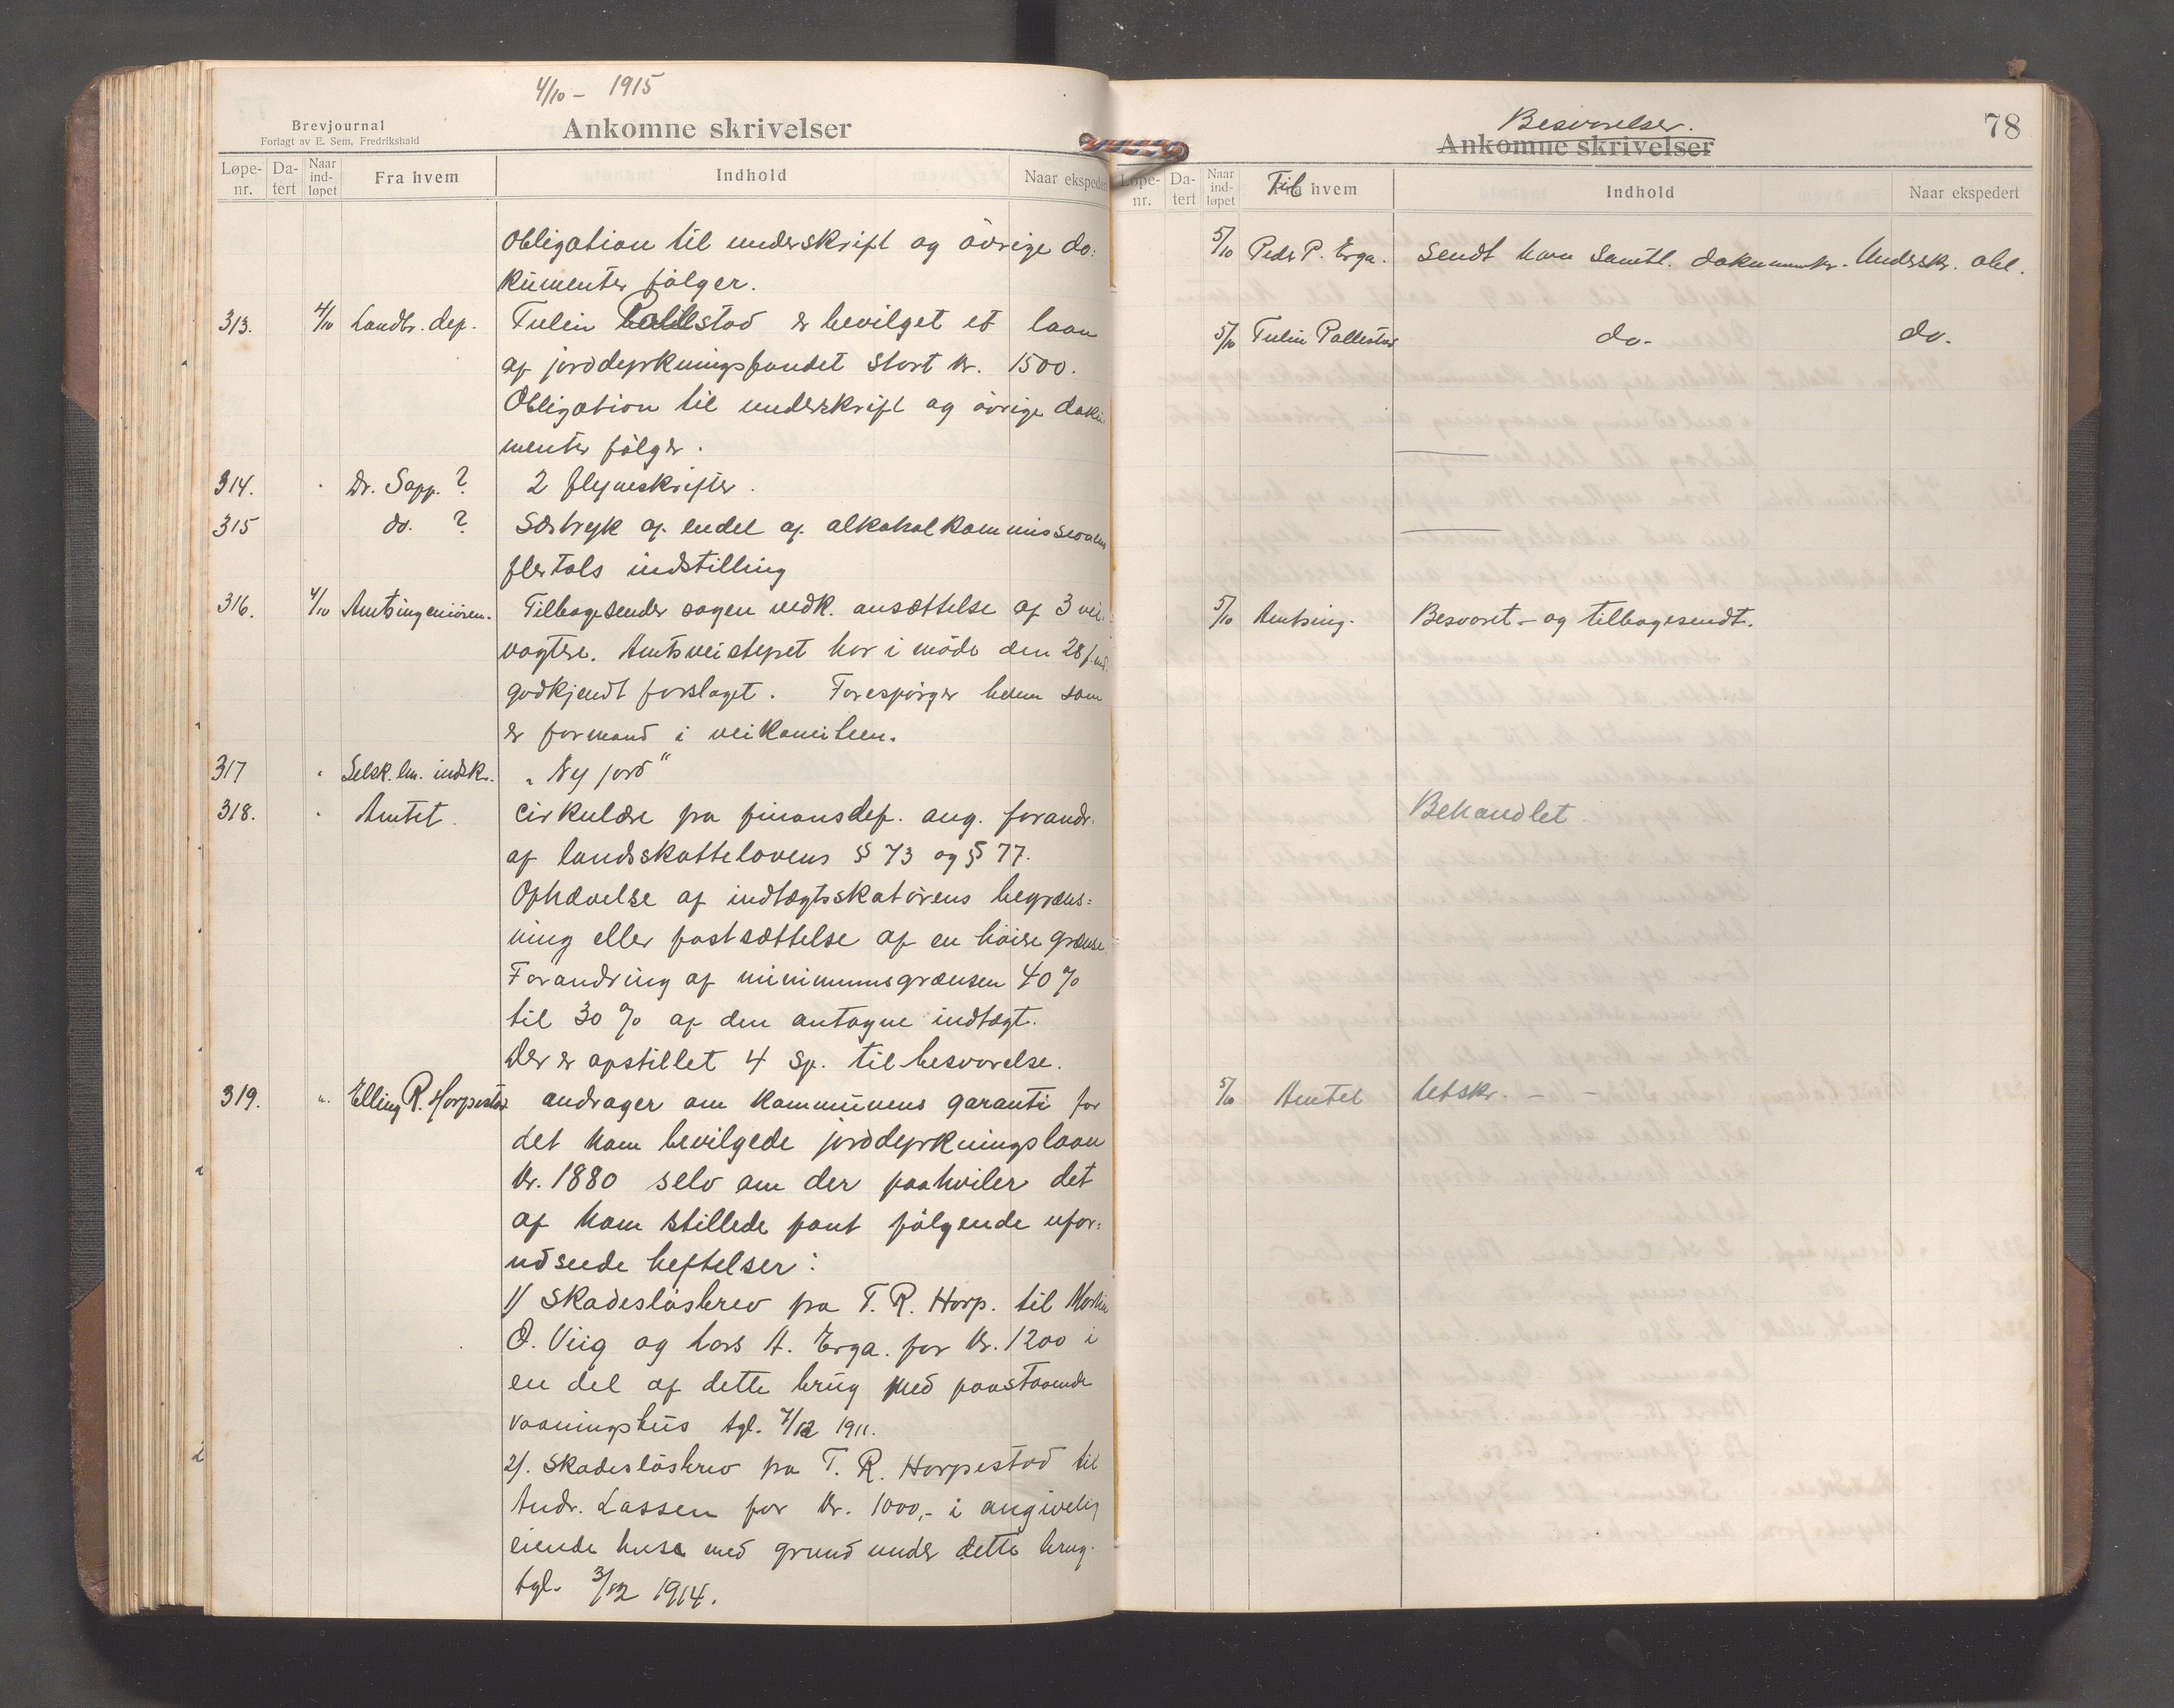 4/10 - 1915
Brevjournal
Forlagt av E. Sem, Fredrikshald
Ankomne skrivelser
Løpe-nr. Da-tert Naar ind-løpet Fra hvem Indhold Naar ekspeder
Obligation til underskrift og övrige do:
kumenter følger.
313. 4/10 Landbr. dep. Tulin Pollestad er bevilget et laan
af jorddyrkningsfondet stort kr. 1500.
Obligation til underskrift og övrige doku:
menter følger.
314. " Dr. Sopp. ? 2 flyveskrifter.
315 do. ? Særtryk af endel af alkoholkommissionens
flertals indstilling
316. 4/10 Amtsingeniören. Tilbagesender sagen vedk. ansættelse af 3 vei:
vogtere. Amtsveistyret har i möde den 28 f.md.
godkjendt forslaget. Forespörger hvem som
er formand i veikomiteen.
317 " Selsk. lm. indskr. "Ny jord"
318. " Amtet. Cirkulære fra finansdep. ang. forandr.
af landsskattelovens § 73 og § 77.
Ophævelse af indtægtsskatörens begræns:
ning eller fastsættelse af en höiere grænse.
Forandring af minimumsgrænsen 40%
til 30% af den antagne indtægt.
Der er opstillet 4 sp. til besvarelse.
319. " Elling R. Horpestad andrager om kommunens garanti for
det ham bevilgede jorddyrkningslaan
kr. 1880 selv om der paahviler det
af ham stillede pant fölgende ufor:
udseede heftelser:
1/ Skadeslösbrev fra T. R. Horp. til Martin
O. Viig og Lars A. Erga. for kr. 1200 i
en del af dette brug med paastaaende
vaaningshus tgl. 7/12 1911.
2/. Skadeslösbrev fra T. R. Horpestad til
Andr. Lassen for kr. 1000,- i angivelig
eiende huse med grund under dette brug.
tgl. 3/12 1914.
78
Besvarelser.
Ankomne skrivelser
Løpe-nr. Da-tert Naar ind-løpet Til hvem Indhold Naar ekspedert
5/10 Peder P. Erga. Sendt ham samtl. dokumenter. Underskr. obl.
5/10 Tulin Pollestad do. do.
5/10 Amtsing. Besvaret - og tilbagesendt.
Behandlet.
5/10 Amtet Utskr. - -